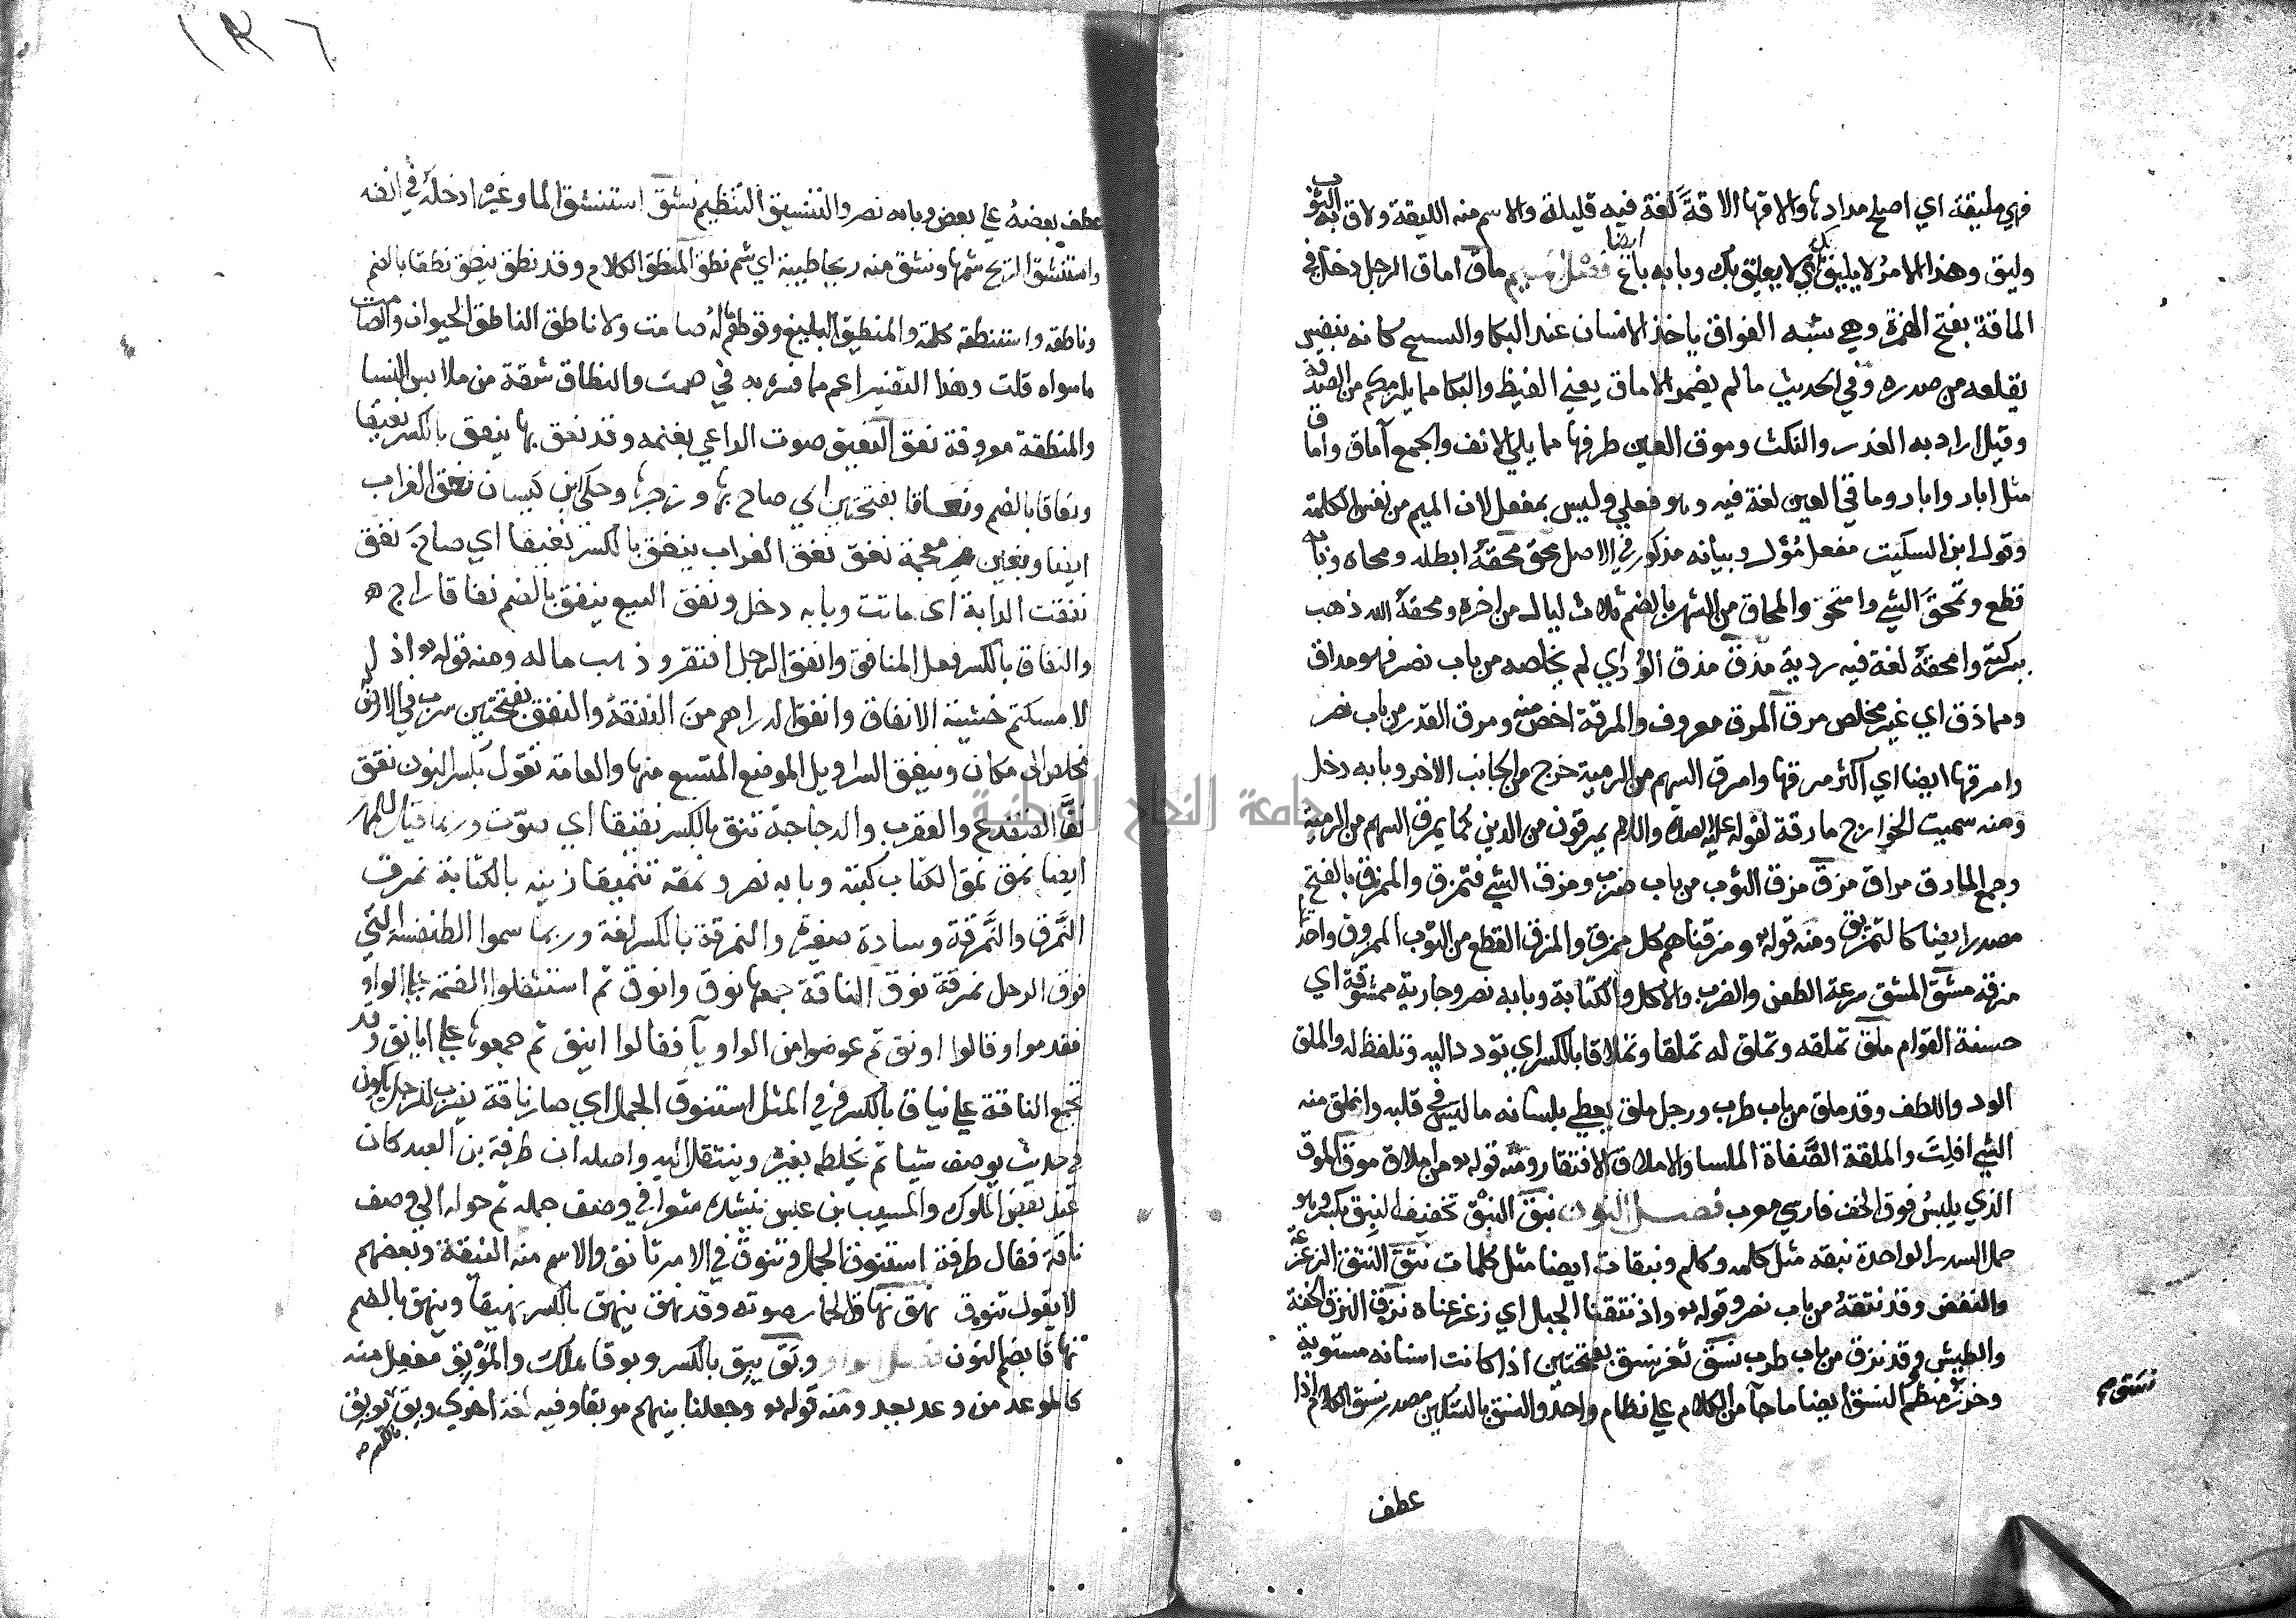 فهي مليقة اي اصلح مدادها والاقها الاقةً لغة فيه قليلة والاسم منه الليقة ولاق به الثوب
وليق وهذا الامر لا يليق بك اي لا يعلق بك وبابه باع ايضا فصل الميم ماق اماق الرجل دخل في
الماقة بفتح الهمزة وهي شبه الفواق ياخذ الانسان عند البكا والنسيج كانه نفس
يقلعه من صدره وفي الحديث ما لم يضمروا الاماق يعني الغيظ والبكا مما يلزمكم من الصدقة
وقيل اراد به الغدر والنكث وموق العين طرفها مما يلي الانف والجمع آماق واماق
مثل ابار وابار وماقي العين لغة فيه وهو فعلي وليس بمفعل لان الميم من نفس الكلمة
وقول ابن السكيت مفعل مُؤَل وبيانه مذكور في الاصل محق محقهُ ابطله ومحاه وبابه
قطع وتمحَّق الشي وامتحق والمحاق من الشهر بالضم ثلاث ليال من اخره ومحقهُ الله ذهب
ببركته وامحقهُ لغة فيه ردية مذق مذق الودّ اي لم يخلصه من باب نصر فهو مذاق
ومماذق اي غير مخلص مرق المرق معروف والمرقة اخص منه ومرق القدر من باب نصر
وامرقها ايضا اي اكثر مرقها وامرق السهم من الرمية خرج من الجانب الاخر وبابه دخل
ومنه سميت الخوارج مارقة لقوله عليه الصلاة والسلام يمرقون من الدين كما يمرق السهم من الرمية
وجمع المارق مراق مزق مزق الثوب من باب ضرب ومزق الشي فتمزق والممزق بالفتح
مصدر ايضا كالتمزيق ومنه قوله تع ومزقناهم كل ممزق والمزق القطع من الثوب الممزوق واحدتها
مزقة مشق المشق سرعة الطعن والضرب والاكل والكتابة وبابه نصر وجارية ممشوقة اي
حسنة القوام ملق تملقه وتملق له تملقا وتملاقا بالكسر اي تودد اليه وتلطف له والملق
الود واللطف وقد ملق من باب طرب ورجل ملق يعطي بلسانه ما ليس في قلبه وانملق منه
الشي افلِتَ والملقة الصَّفاة الملسا والاملاق الافتقار ومنه قوله تع من املاق موق الموق
الذي يلبسُ فوق الخف فارسي معرب فصل النون نبق النبْق تخفيف النبِق بكسر وهو
حمل السدر الواحدة نبقه مثل كلمه وكلم ونبقات ايضا مثل كلمات نتق النتق الزعزعة
والنفض وقد نتقهُ من باب نصر وقوله تع واذ نتقنا الجبل اي زعزعناه نزق النزق الخفة
والطيش وقد نزق من باب طرب نسق ثغر نسق بفتحتين اذا كانت اسنانه مستوية
وخرز منظم النسق ايضا ما جا من الكلام علي نظام واحد والنسق بالتسكين مصدر نسق الكلام اذا
عطف
عطف بعضهُ علي بعض وبابه نصر والتنسيق التنظيم نشق استنشق الما وغيره ادخلهُ في انفه
واستنشق الريح شمها ونشق منه ريحا طيبة اي شم نطق المنطق الكلام وقد نطق ينطق نطقا بالضم
وناطقه واستنطقه كلمه والمنطيق البليغ وقولهم ماله صامت ولا ناطق الناطق الحيوان والصامت
ما سواه قلت وهذا التفسير اعم مما فسره به في صمت والنطاق شقة من ملابس النسا
والمنطقة معروفة نعق النعيق صوت الراعي بغنمه وقد نعق بها ينعق بالكسر نعيقا
ونعاقا بالضم ونعقاقا بفتحتين اي صاح بها وزجرها وحكي ابن كيسان نعق الغراب
ايضا وبغين معجمة نغق نغق الغراب ينغق بالكسر نغيقا اي صاح نفق
نفقت الدابة اي ماتت وبابه دخل ونفق البيع ينفق بالضم نفاقا راج
والنفاق بالكسر فعل المنافق وانفق الرجل افتقر وذهب ماله ومنه قوله تع اذا
لامسكتم خشية الانفاق وانفق الدراهم من النفقة والنفق بفتحتين سرب في الارض
مخلص الي مكان ونيفق السراويل الموضع المتسع منها والعامة تقول بكسر النون نقق
نقَّ الضفدع والعقرب والدجاجة تنق بالكسر نقيقا اي صوّت وربما قيل للهر
ايضا نمق نمق الكتاب كتبه وبابه نصر ونمقه تنميقا زينه بالكتابة نمرق
النُّمرق والنُّمرقة وسادة صغيرة والنمرقة بالكسر لغة وربما سموا الطنفسة التي
فوق الرحل نمرقة نوق الناقة جمعها نوق وانوق ثم استثقلوا الضمة علي الواو
فقدموا وقالوا اونق ثم عوضوا من الواو يآ فقالوا اينق ثم جمعوها علي ايانق وقد
تجمع الناقة علي نياق بالكسر وفي المثل استنوق الجمل اي صار ناقة يضرب للرجل يكون
في حديث يوصف شيا ثم يخلطه بغيره وينتقل اليه واصله ان طرفة بن العبد كان
عند بعض الملوك والمسيب بن علس ينشده شعرا في وصف جمله ثم حوله الي وصف
ناقة فقال طرفة استنوق الجمل وتنوق في الامر تانق والاسم منه النيقة وبعضهم
لا يقول تنوق نهق نهاق الحمار صوته وقد نهق ينهق بالكسر نهيقا وينهق بالضم
نهاقا بضم النون فصل الواو وبق وبق يبق بالكسر وبوقا هلك والمَوْبِق مفعِل منه
كالموعد من وعد يعد ومنه قوله تع وجعلنا بينهم موبقا وفيه لغة اخري وبق يوبق
بالكسر